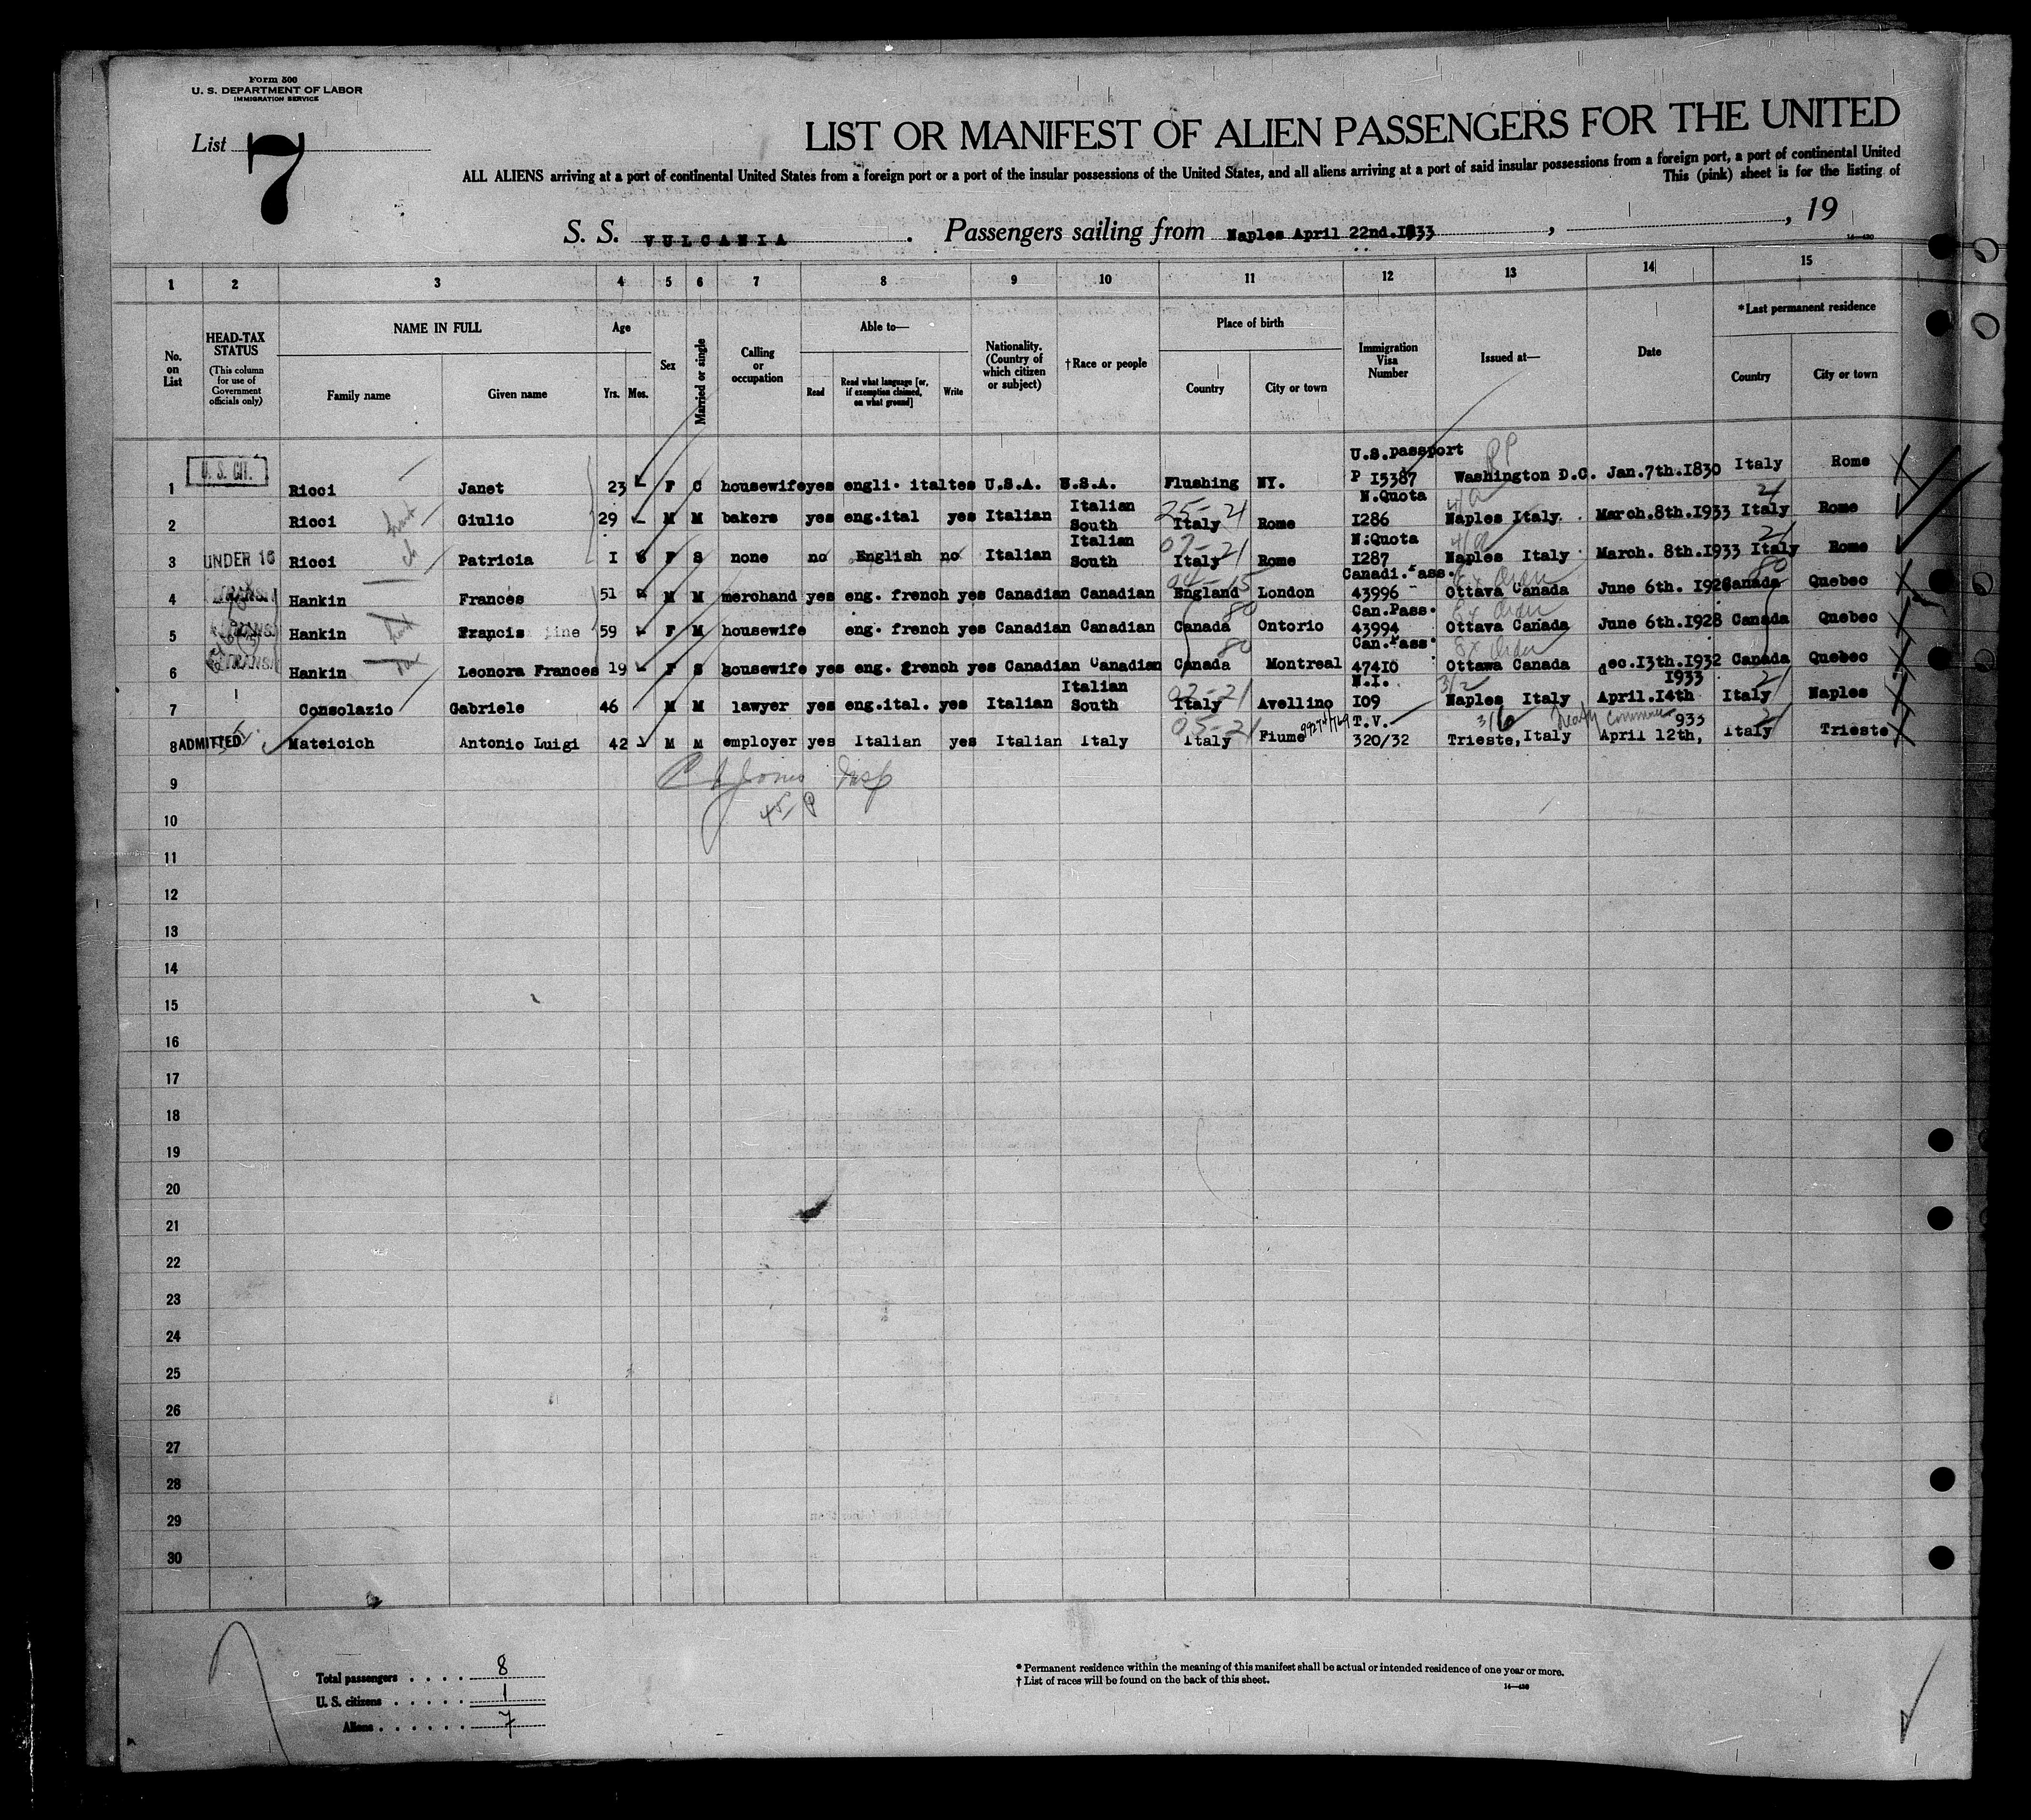 Form 500
U. S. DEPARTMENT OF LABOR
IMMIGRATION SERVICE
List 7
LIST OR MANIFEST OF ALIEN PASSENGERS FOR THE UNITED
ALL ALIENS arriving at a port of continental United States from a foreign port or a port of the insular possessions of the United States, and all aliens arriving at a port of said insular possessions from a foreign port, a port of continental United
This (pink) sheet is for the listing of
S. S. VULCANIA. Passengers sailing from Naples April 22nd.1933, , 19
14—430
1 2 3 4 5 6 7 8 9 10 11 12 13 14 15
No. on List
HEAD-TAX STATUS (This column for use of Government officials only)
NAME IN FULL
Family name Given name
Age
Yrs. Mos.
Sex
Married or single
Calling or occupation
Able to—
Read Read what language [or, if exemption claimed, on what ground] Write
Nationality. (Country of which citizen or subject)
†Race or people
Place of birth
Country City or town
Immigration Visa Number
Issued at—
Date
*Last permanent residence
Country City or town
U.S.passport PP
1 U. S. CIT. Ricci Janet 23 F C housewife yes engli. ital tes U.S.A. U.S.A. Flushing NY. P I5387 Washington D.C. Jan.7th.I830 Italy Rome
Italian N.Quota 21
2 Ricci Giulio 29 M M bakers yes eng.ital yes Italian South 25-21 Italy Rome I286 Naples Italy. March.8th.I933 Italy Rome
Italian N:Quota 21
3 UNDER 16 Ricci Patricia I 6 F S none no English no Italian South 07-21 Italy Rome I287 Naples Italy March. 8th.I933 Italy Rome
Canadi.Pass. Ex Order 80
4 TRANS Hankin Frances 51 M M merchand yes eng. french yes Canadian Canadian 04-15 England London 43996 Ottava Canada June 6th. I928 Canada Quebec
Can.Pass. Ex Order
5 TRANS Hankin Francis ine 59 F M housewife eng. french yes Canadian Canadian 80 Canada Ontorio 43994 Ottava Canada June 6th.I928 Canada Quebec
Can.Pass. Ex Order
6 TRANS Hankin Leonora Frances I9 F S housewife yes eng. grench yes Canadian Canadian 80 Canada Montreal 474I0 Ottawa Canada dec.I3th.I932 Canada Quebec
Italian N.I. 3/2 I933 21
7 Consolazio Gabriele 46 M M lawyer yes eng.ital. yes Italian South 02-21 Italy Avellino I09 Naples Italy April.I4th Italy Naples
T.V. 3/6 933 21
8 ADMITTED Mateicich Antonio Luigi 42 M M employer yes Italian yes Italian Italy 05-21 Italy Fiume 320/32 Trieste, Italy April 12th, Italy Trieste
9 Jones Insp
10 45 P
11
12
13
14
15
16
17
18
19
20
21
22
23
24
25
26
27
28
29
30
Total passengers . . . . 8
U. S. citizens . . . . . 1
Aliens . . . . . . 7
* Permanent residence within the meaning of this manifest shall be actual or intended residence of one year or more.
† List of races will be found on the back of this sheet.
14—430